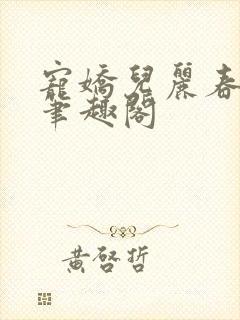 寵嬌兒麗春
筆趣閣
黃啓哲